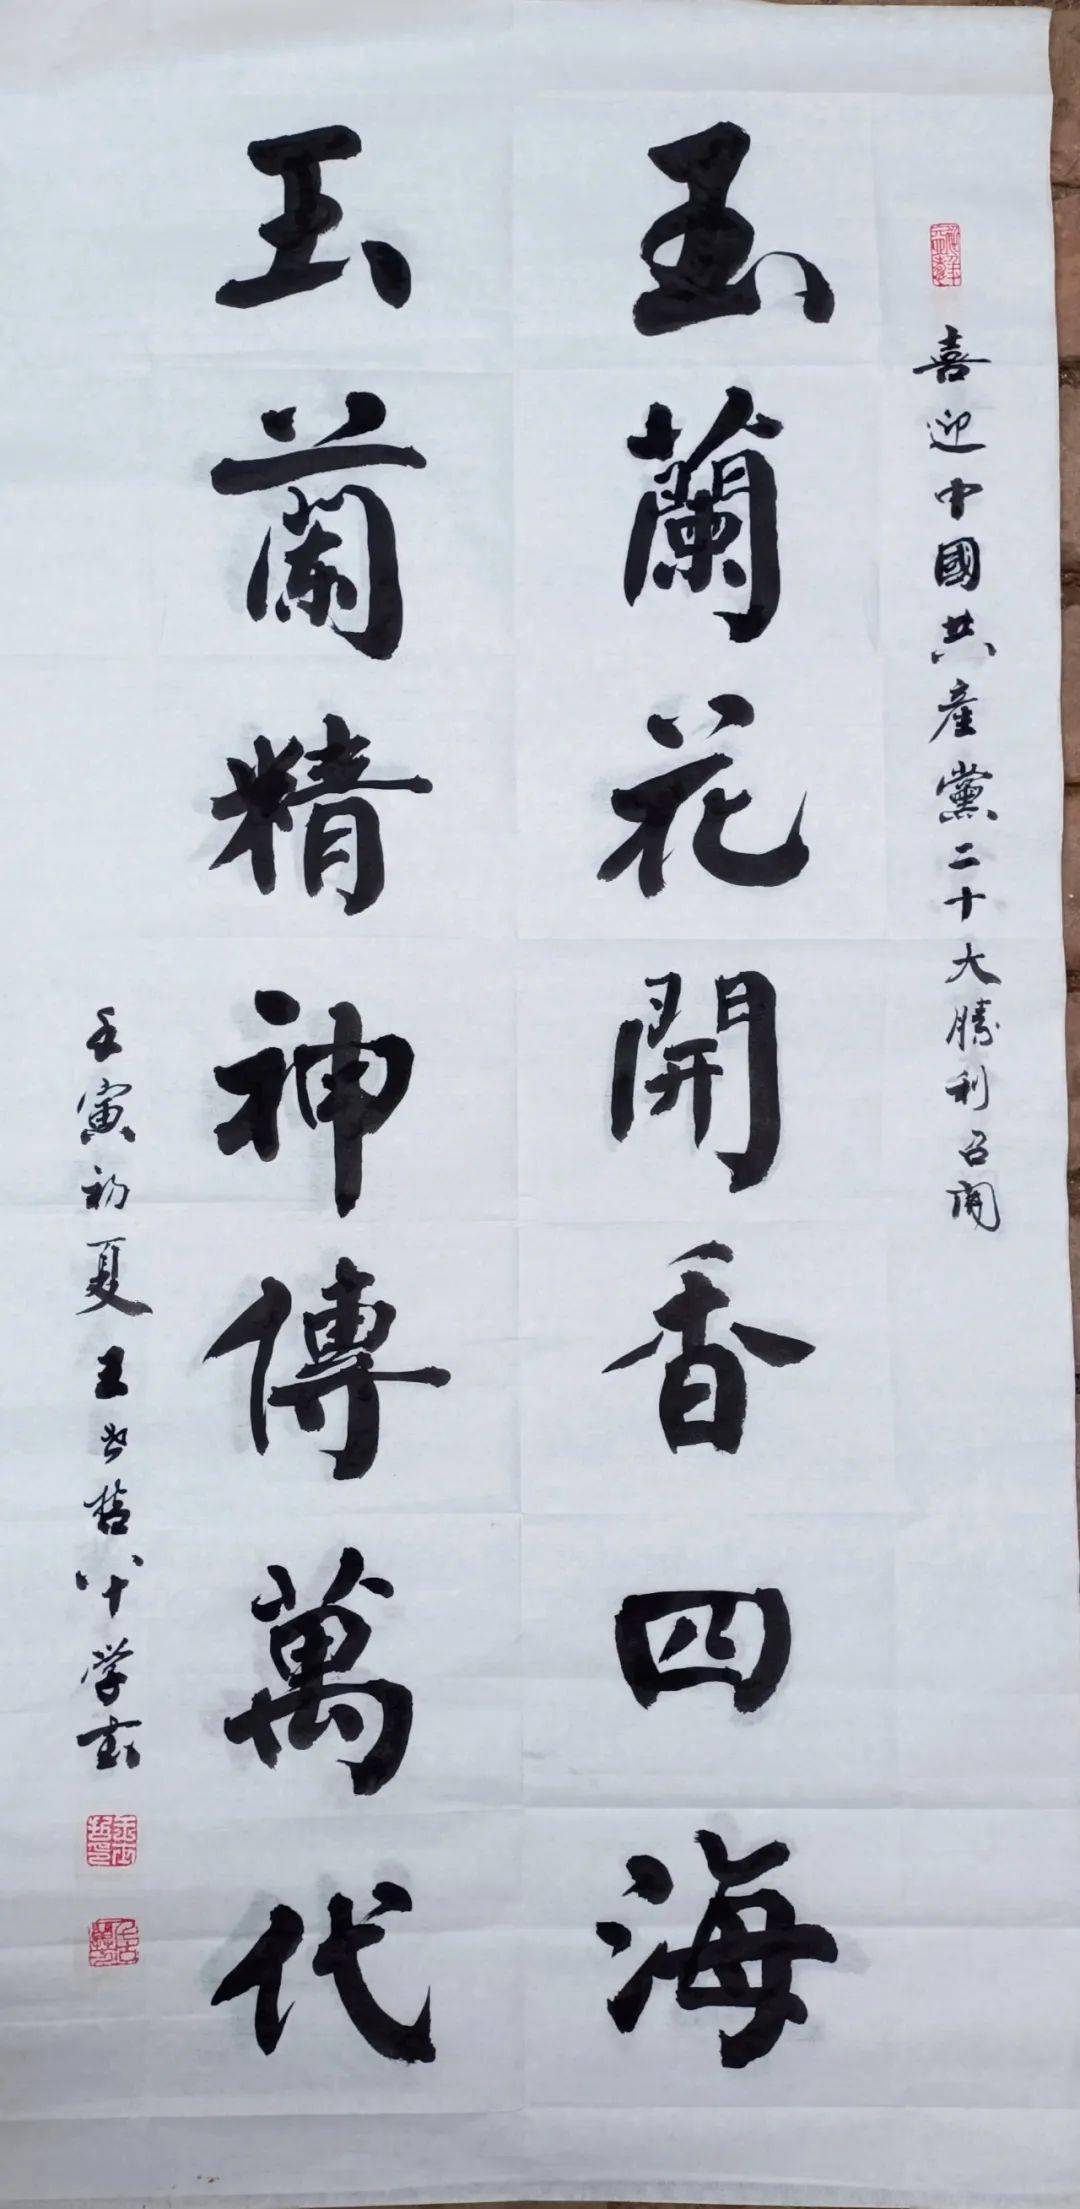 喜迎中國共產黨二十大勝利召開
玉蘭花開香四海
玉蘭精神傳萬代
壬寅初夏王哲八十学書